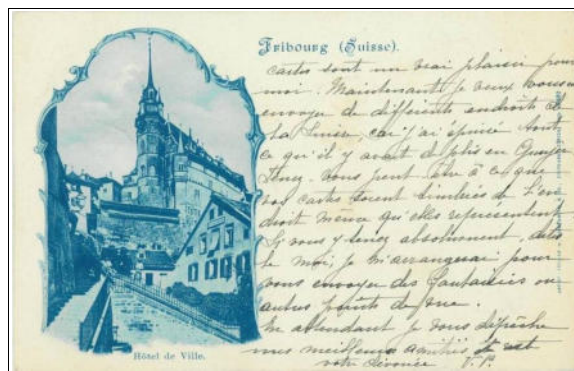 Fribourg (Suisse).
cartes sont un vrai plaisir pour
moi. Maintenant je veux vous en
envoyer de différents endroits de
la Suisse, car j'ai épuisé tout
ce qu'il y avait de plis en Gruyer
Tenez-vous peut être à ce que
vos cartes soient timbrées de l'en
droit meme qu'elles representent
Si vous y tenez absolument, dites
le moi, je m'arrangerai pour
vous envoyer des fantaisies ou
autres points de vue.
En attendant je vous dépêche
mes meilleures amitiés et
votre dévouée V. P.
Hôtel de Ville.